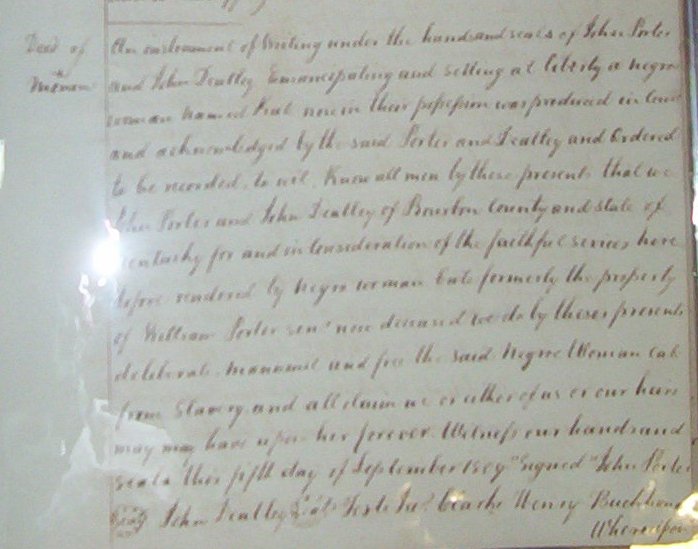 Deed of
An instrument of Writing under the hands and seals of John Porter
and John Deatley Emancipating and setting at liberty a negro
woman named now in their possession was produced in
and acknowledged by the said Porter and Deatley and Ordered
to be recorded, to wit, Know all men by these presents that we
John Porter and John Deatley of Bourbon County and state of
Kentucky for and in Consideration of the faithful services here
tofore rendered by Negro woman formerly the property
of William Porter senr now deceased we do by these presents
deliberate, manumit and free the said Negroe Woman
from Slavery and all claim we or either of us or our heirs
may may have upon her forever. Witness our hands and
seals this fifth day of September 1809 "Signed" John Porter
John Deatley Teste Clarke Henry
Whereupon